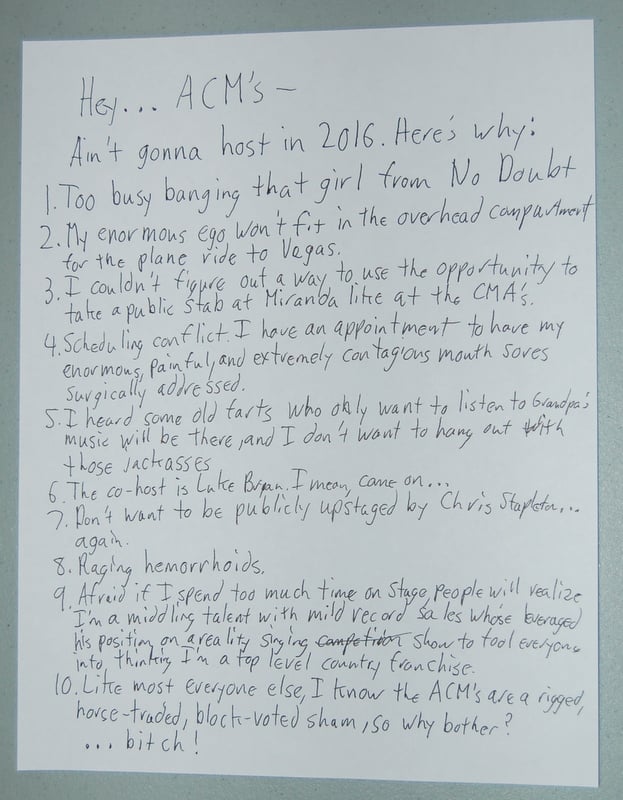 Hey... ACM's -
Ain't gonna host in 2016. Here's why:
1. Too busy banging that girl from No Doubt
2. My enormous ego won't fit in the overhead compartment
for the plane ride to Vegas.
3. I couldn't figure out a way to use the opportunity to
take a public stab at Miranda like at the CMA's.
4. Scheduling conflict. I have an appointment to have my
enormous, painful, and extremely contagious mouth sores
surgically addressed.
5. I heard some old farts who only want to listen to Grandpa's
music will be there, and I don't want to hang out with
those jackasses
6. The co-host is Luke Bryan. I mean, come on...
7. Don't want to be publicly upstaged by Chris Stapleton...
again.
8. Raging hemorrhoids.
9. Afraid if I spend too much time on stage, people will realize
I'm a middling talent with mild record sales whose leveraged
his position on a reality singing competition show to fool everyone
into thinking I'm a top level country franchise.
10. Like most everyone else, I know the ACM's are a rigged,
horse-traded, block-voted sham, so why bother?
... bitch!